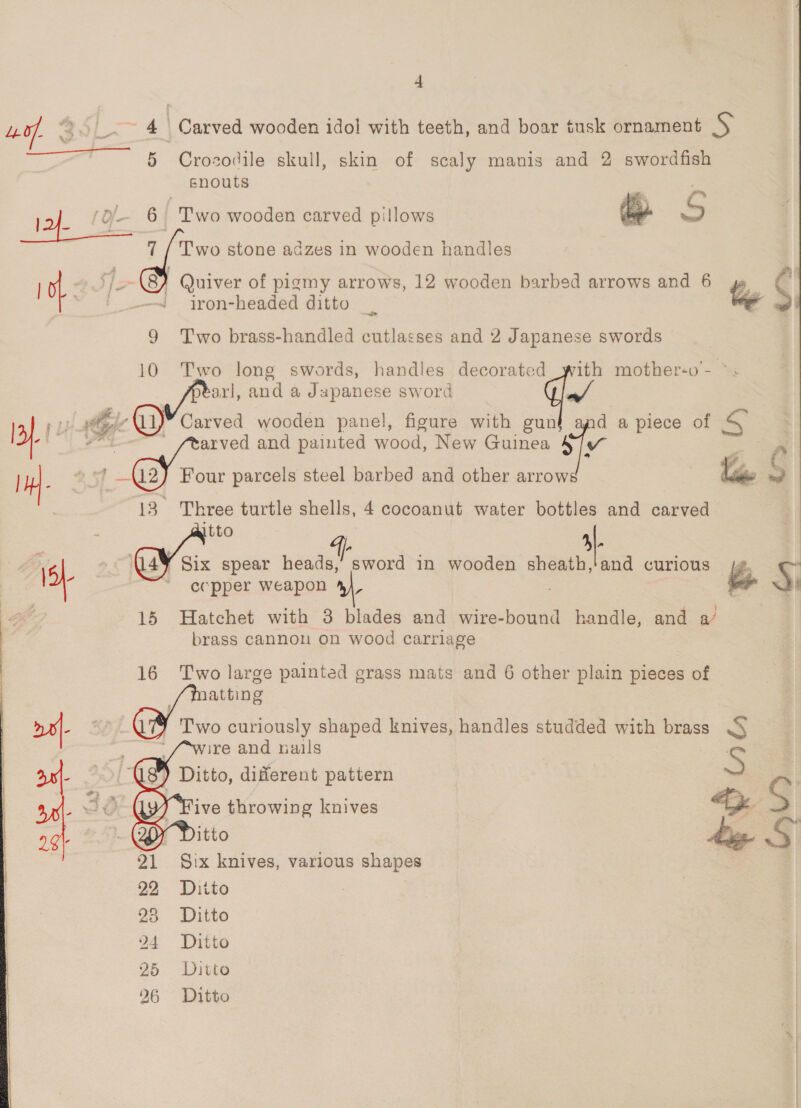 4
40/- 4 Carved wooden idol with teeth, and boar tusk ornament S
5 Crocodile skull, skin of scaly manis and 2 swordfish
snouts
12/- 10/- 6 Two wooden carved pillows S
7 Two stone adzes in wooden handles
10/- 8 Quiver of pigmy arrows, 12 wooden barbed arrows and 6
iron-headed ditto S
9 Two brass-handled cutlasses and 2 Japanese swords
10 Two long swords, handles decorated with mother-o'-
pearl, and a Japanese sword
13/- 11 Carved wooden panel, figure with gun and a piece of S
carved and painted wood, New Guinea
14/- 12 Four parcels steel barbed and other arrows S
13 Three turtle shells, 4 cocoanut water bottles and carved
ditto
15/- 14 Six spear heads, sword in wooden sheath, and curious S
copper weapon
15 Hatchet with 3 blades and wire-bound handle, and a
brass cannon on wood carriage
16 Two large painted grass mats and 6 other plain pieces of
matting
20/- 17 Two curiously shaped knives, handles studded with brass S
wire and nails
30/- 18 Ditto, different pattern S
30/- 19 Five throwing knives S
28/- 20 Ditto S
21 Six knives, various shapes
22 Ditto
23 Ditto
24 Ditto
25 Ditto
26 Ditto